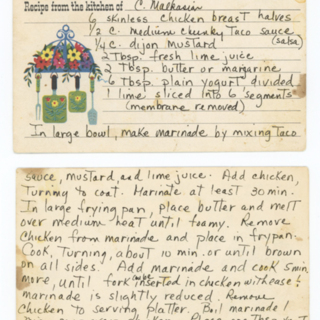 Recipe from the kitchen of C. Mackasin
6 skinless chicken breast halves
1/2 C. medium chunky Taco sauce
(salsa)
1/4 C. dijon mustard
2 Tbsp. fresh lime juice
2 Tbsp. butter or margarine
6 Tbsp. plain yogurt divided
1 lime sliced into 6 segments
(membrane removed)
In large bowl, make marinade by mixing Taco
sauce, mustard, and lime juice. Add chicken,
Turning to coat. Marinate at least 30 min.
In large frying pan, place butter and melt
over medium heat until foamy. Remove
chicken from marinade and place in frypan.
Cook, Turning, about 10 min. or until brown
on all sides. Add marinade and cook 5 min
more, until fork can be inserted in chicken with ease &
marinade is slightly reduced. Remove
chicken to serving platter. Boil marinade